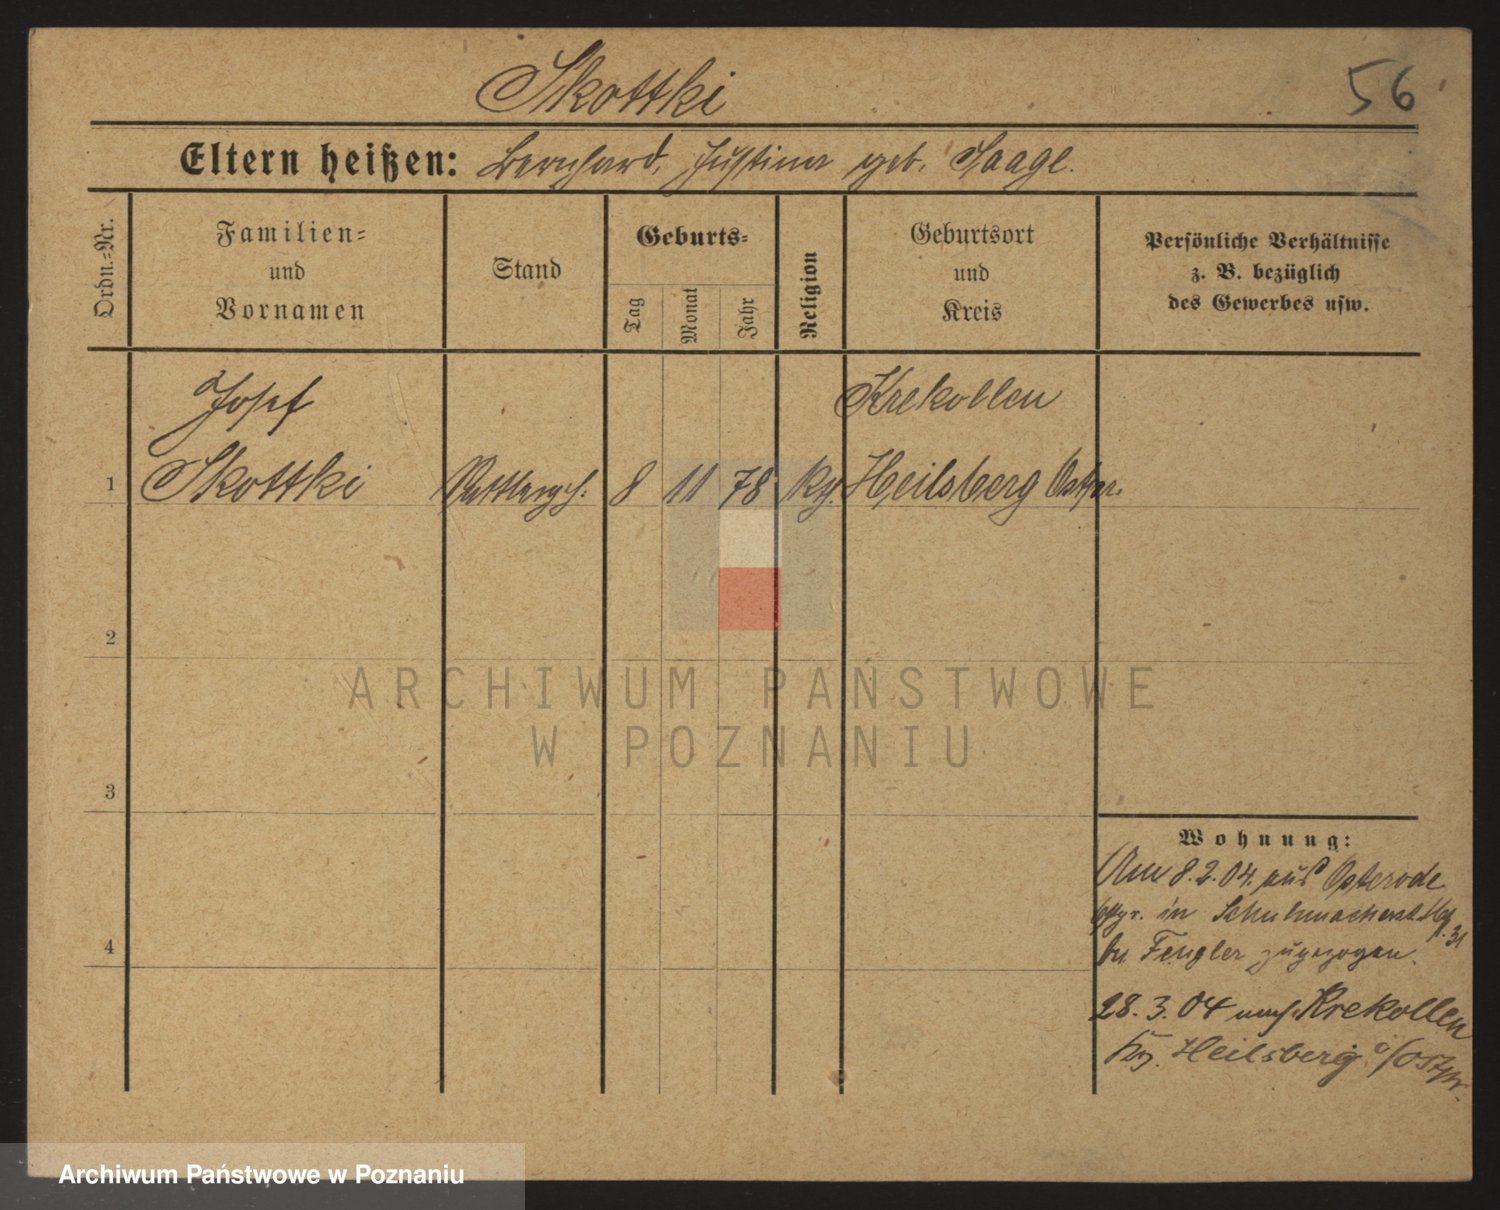 Skottki
56
Eltern heißen: Bernhard, Justina geb. Saage.
Ordn.=Nr.
Familien=
und
Vornamen
Stand
Geburts=
Tag
Monat
Jahr
Religion
Geburtsort
und
Kreis
Persönliche Verhältnisse
z. B. bezüglich
des Gewerbes usw.
Josef
Krekollen
1 Skottki 8 11 78 Heilsberg Ostpr.
2
ARCHIWUM PAŃSTWOWE
W POZNANIU
3
Wohnung:
Am 8.2.04. aus Osterode
in 31
Fengler zugezogen.
4
28.3.04 nach Krekollen
Heilsberg i/Ostpr.
Archiwum Państwowe w Poznaniu